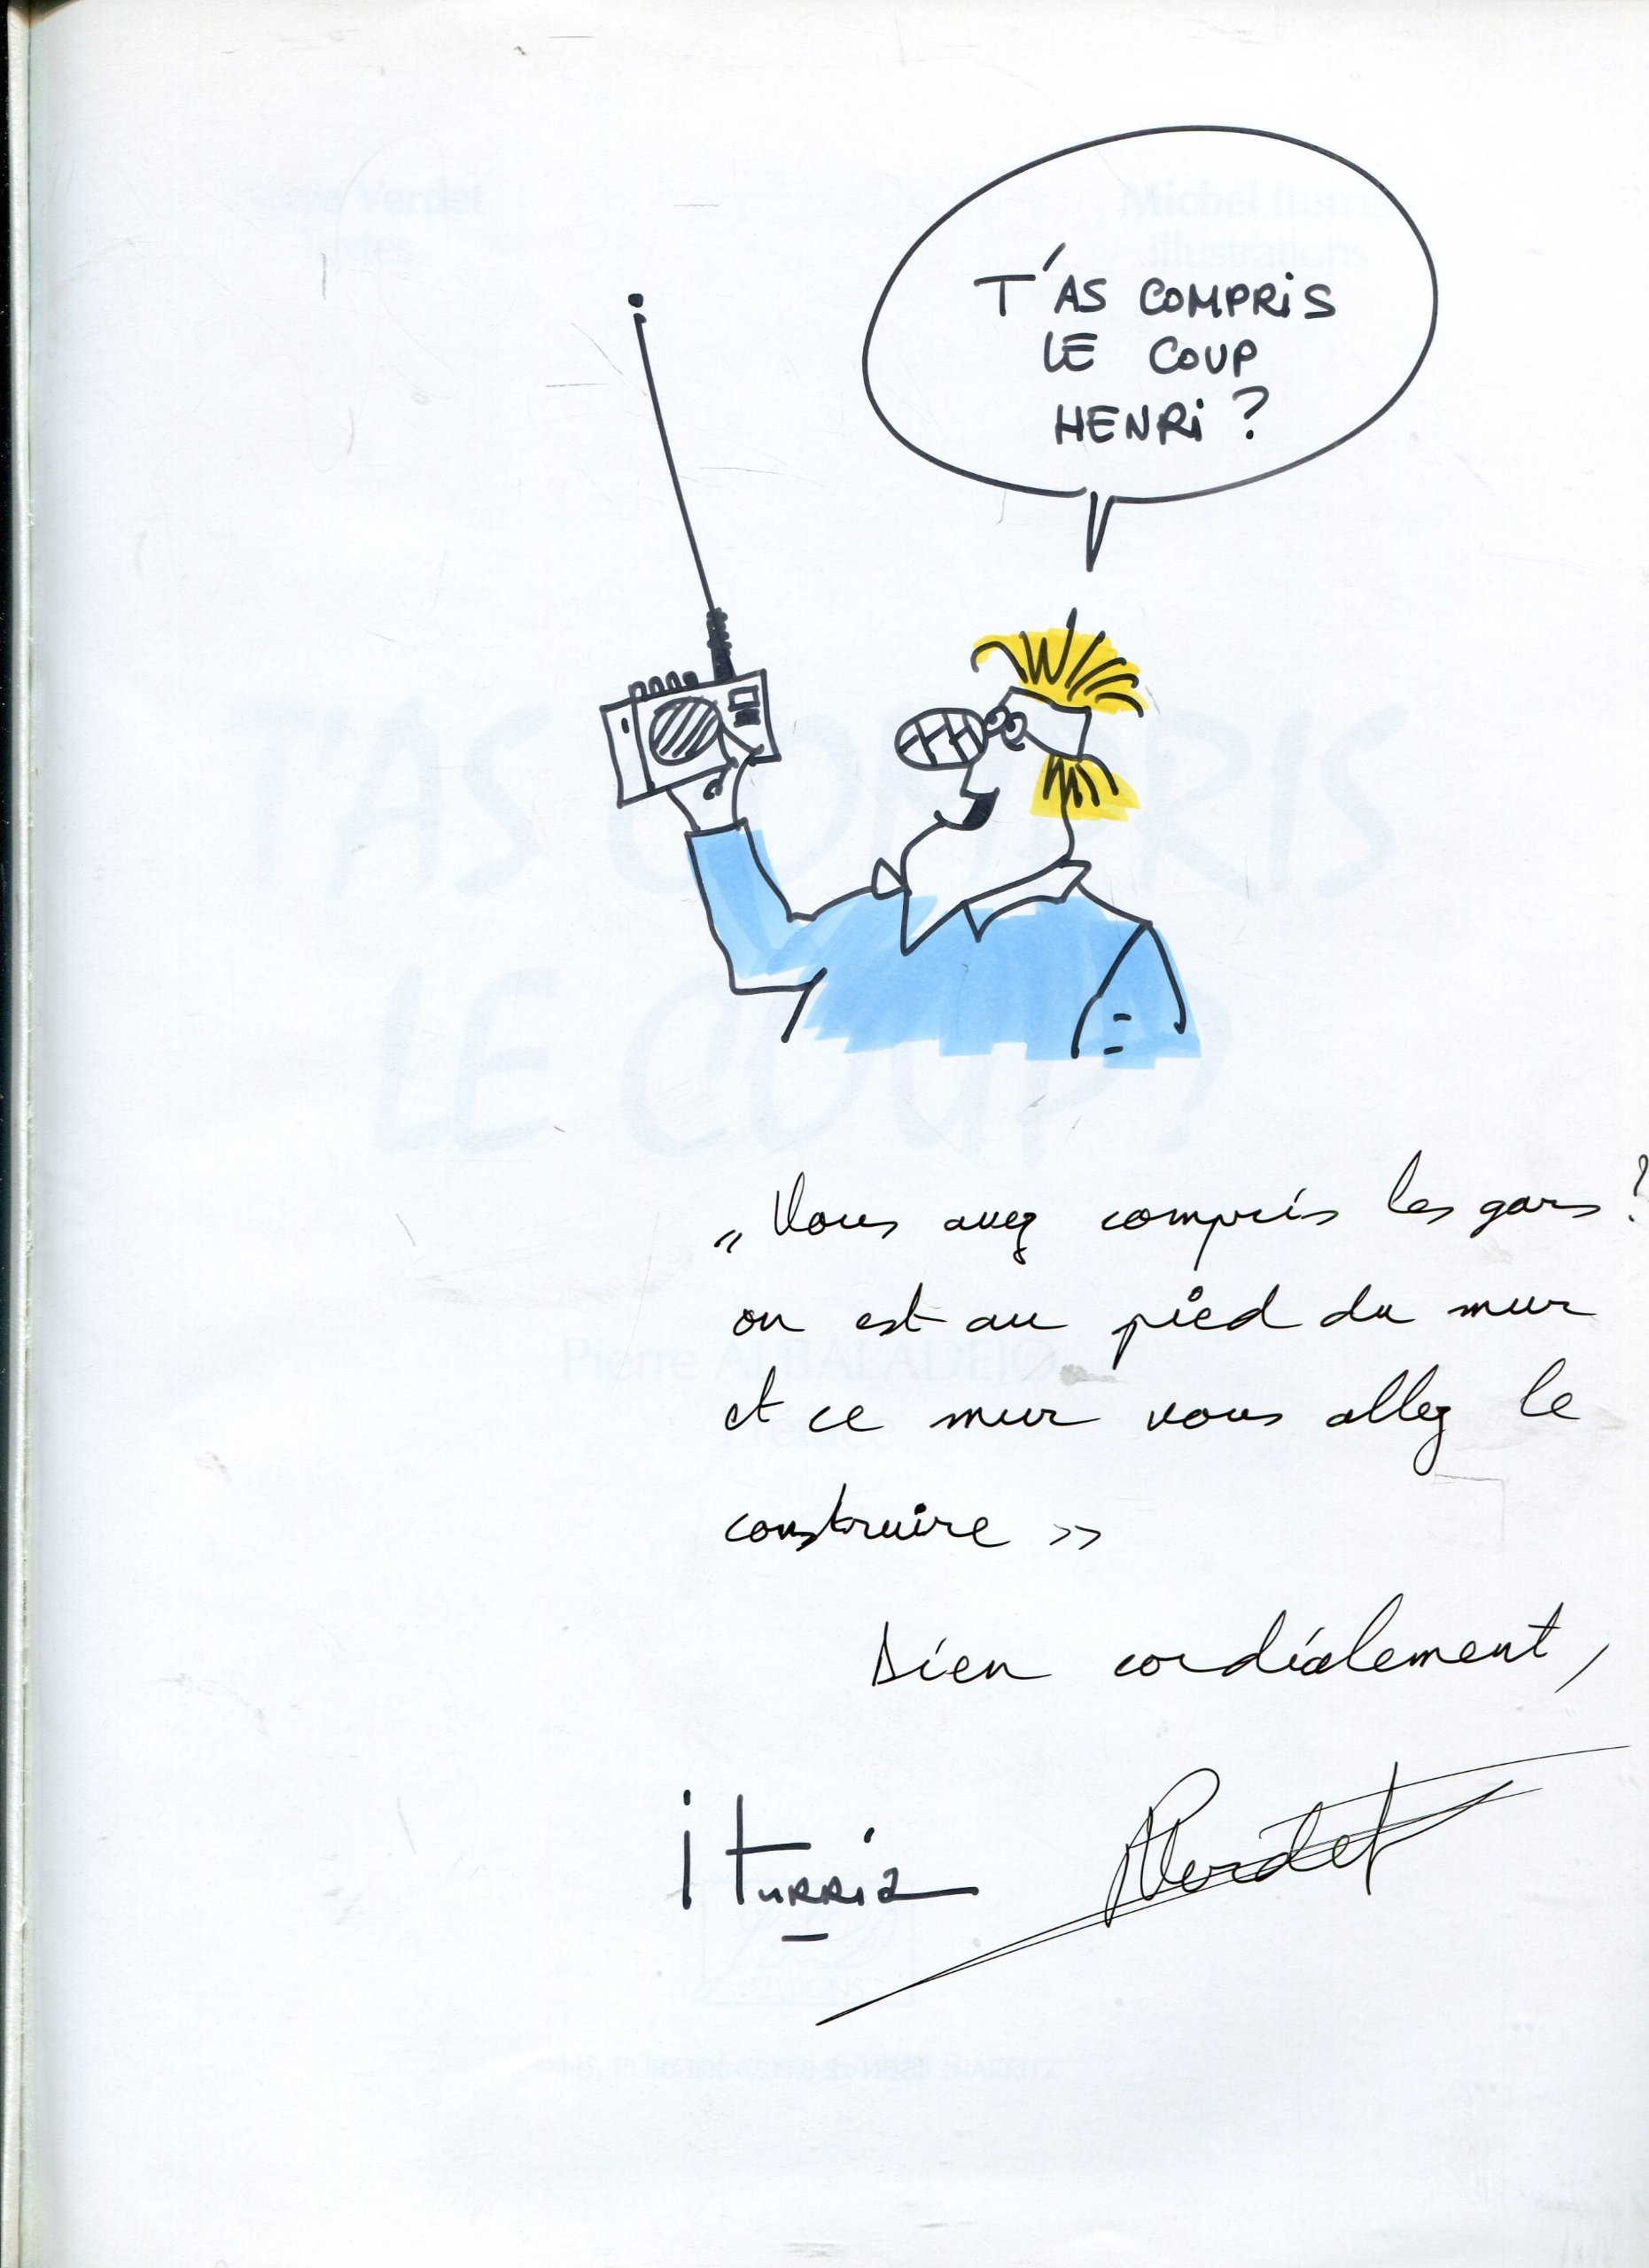 T'AS COMPRiS
LE COUP
HENRi ?
" Vous avez compris les gars ?
on est au pied du mur
et ce mur vous allez le
construire >>
Bien cordialement,
iTURRiA
PVerdet
Pierre Verdet
Textes
Michel Iturria
Illustrations
T'AS COMPRIS
LE COUP ?
Pierre ALBALADEJO